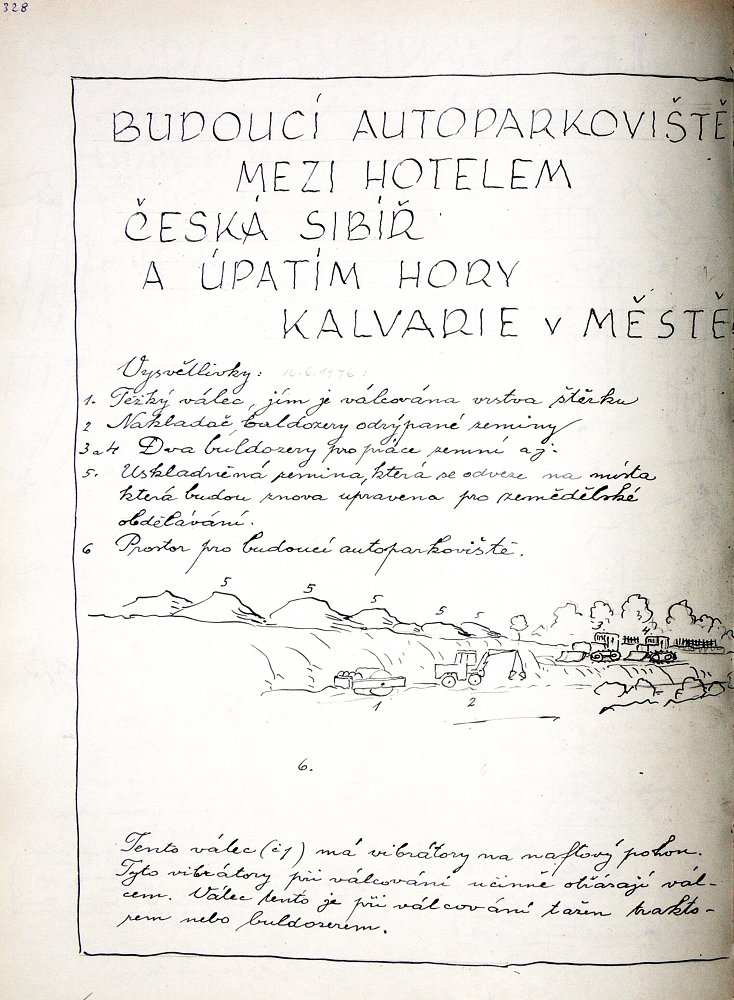 328
BUDOUCÍ AUTOPARKOVIŠTĚ
MEZI HOTELEM
ČESKÁ SIBÍŘ
A ÚPATÍM HORY
KALVARIE V MĚSTĚ
Vysvětlivky:
1. Těžký válec, jím je válcována vrstva štěrku
2 Nakladač buldozery odrýpané zeminy
3 a 4 Dva buldozery pro práce zemní aj.
5. Uskladněná zemina, která se odveze na místa
která budou znova upravena pro zemědělské
obdělávání.
6 Prostor pro budoucí autoparkoviště.
5 5 5 5 5 3. 4.
1 2
6.
Tento válec (č1) má vibrátory na naftový pohon.
Tyto vibrátory při válcování účinně otřásají vál-
cem. Válec tento je při válcování tažen trakto-
rem nebo buldozerem.